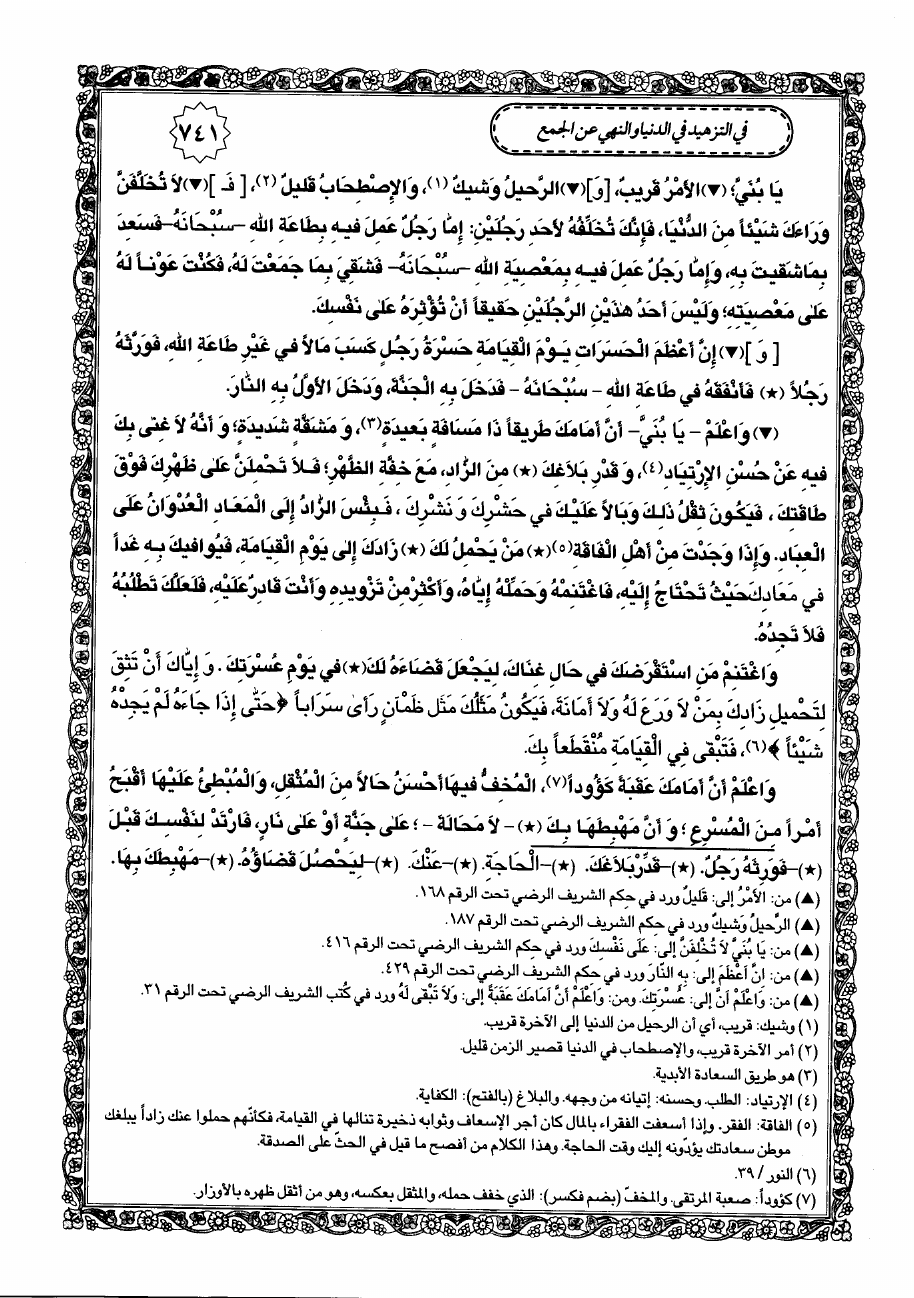 في التزهيد في الدنيا والنهي عن الجمع
٧٤١
يَا بُنَيَّ؛ (▼)الأَمْرُ قَرِيبٌ، [وَ](▼)الرَّحِيلُ وَشِيكٌ(١)، وَالإِصْطِحَابُ قَلِيلٌ(٢)، [ فَـ ](▼)لاَ تُخَلِّفَنَّ
وَرَاءَكَ شَيْئاً مِنَ الدُّنْيَا، فَإِنَّكَ تُخَلِّفُهُ لأَحَدِ رَجُلَيْنِ: إِمَّا رَجُلٌ عَمِلَ فيهِ بِطَاعَةِ اللهِ –سُبْحَانَهُ– فَسَعِدَ
بِمَا شَقيتَ بِهِ، وَإِمَّا رَجُلٌ عَمِلَ فيهِ بِمَعْصِيَةِ اللهِ –سُبْحَانَهُ– فَشَقِيَ بِمَا جَمَعْتَ لَهُ، فَكُنْتَ عَوْناً لَهُ
عَلىٰ مَعْصِيَتِهِ؛ وَلَيْسَ أَحَدُ هٰذَيْنِ الرَّجُلَيْنِ حَقيقاً أَنْ تُؤْثِرَهُ عَلىٰ نَفْسِكَ.
[ وَ ](▼) إِنَّ أَعْظَمَ الْحَسَرَاتِ يَوْمَ الْقِيَامَةِ حَسْرَةُ رَجُلٍ كَسَبَ مَالاً في غَيْرِ طَاعَةِ اللهِ، فَوَرَّثَهُ
رَجُلاً (★) فَأَنْفَقَهُ في طَاعَةِ اللهِ – سُبْحَانَهُ – فَدَخَلَ بِهِ الْجَنَّةَ، وَدَخَلَ الأَوَّلُ بِهِ النَّارَ.
(▼) وَاعْلَمْ – يَا بُنَيَّ– أَنَّ أَمَامَكَ طَريقاً ذَا مَسَافَةٍ بَعيدَةٍ(٣)، وَ مَشَقَّةٍ شَديدَةٍ؛ وَ أَنَّهُ لاَ غِنى بِكَ
فيهِ عَنْ حُسْنِ الإِرْتِيَادِ(٤)، وَ قَدْرِ بَلاَغِكَ (★) مِنَ الزَّادِ، مَعَ خِفَّةِ الظَّهْرِ؛ فَلاَ تَحْمِلَنَّ عَلىٰ ظَهْرِكَ فَوْقَ
طَاقَتِكَ ، فَيَكُونَ ثِقْلُ ذَلِكَ وَبَالاً عَلَيْكَ في حَشْرِكَ وَ نَشْرِكَ ، فَبِئْسَ الزَّادُ إِلَى الْمَعَادِ الْعُدْوَانُ عَلَى
الْعِبَادِ. وَإِذَا وَجَدْتَ مِنْ أَهْلِ الْفَاقَةِ(٥)(★) مَنْ يَحْمِلُ لَكَ (★) زَادَكَ إِلى يَوْمِ الْقِيَامَةِ، فَيُوَافيكَ بِهِ غَداً
في مَعَادِكَ حَيْثُ تَحْتَاجُ إِلَيْهِ، فَاغْتَنِمْهُ وَحَمِّلْهُ إِيَّاهُ، وَأَكْثِرْ مِنْ تَزْويدِهِ وَأَنْتَ قَادِرٌ عَلَيْهِ، فَلَعَلَّكَ تَطْلُبُهُ
فَلاَ تَجِدُهُ.
وَاغْتَنِمْ مَنِ اسْتَقْرَضَكَ في حَالِ غِنَاكَ، لِيَجْعَلَ قَضَاءَهُ لَكَ(★) في يَوْمِ عُسْرَتِكَ . وَ إِيَّاكَ أَنْ تَثِقَ
لِتَحْميلِ زَادِكَ بِمَنْ لاَ وَرَعَ لَهُ وَلاَ أَمَانَةَ، فَيَكُونُ مَثَلُكَ مَثَلَ ظَمْانٍ رَأىٰ سَرَاباً ﴿حَتّى إِذَا جَاءَهُ لَمْ يَجِدْهُ
شَيْئاً ﴾(٦)، فَتَبْقى فِي الْقِيَامَةِ مُنْقَطَعاً بِكَ.
وَاعْلَمْ أَنَّ أَمَامَكَ عَقَبَةً كَؤُوداً(٧)، الْمُخِفُّ فيهَا أَحْسَنُ حَالاً مِنَ الْمُثْقِلِ، وَالْمُبْطِئُ عَلَيْهَا أَقْبَحُ
أَمْراً مِنَ الْمُسْرِعِ ؛ وَ أَنَّ مَهْبِطَهَا بِكَ (★) – لاَ مَحَالَةَ – ؛ عَلى جَنَّةٍ أَوْ عَلى نَارٍ، فَارْتَدْ لِنَفْسِكَ قَبْلَ
(★)–فَوَرِثَهُ رَجُلٌ. (★)–قَدِّرْ بَلاَغَكَ. (★)–الْحَاجَةِ. (★)–عَنْكَ. (★)–لِيَحْصُلَ قَضَاؤُهُ. (★)–مَهْبِطَكَ بِهَا.
(▲) من: الأَمْرُ إلى: قَليلٌ ورد في حكم الشريف الرضي تحت الرقم ١٦٨.
(▲) الرَّحيلُ وَشيكٌ ورد في حكم الشريف الرضي تحت الرقم ١٨٧.
(▲) من: يَا بُنَيَّ لاَ تُخَلِّفَنَّ إلى: عَلى نَفْسِكَ ورد في حكم الشريف الرضي تحت الرقم ٤١٦.
(▲) من: إِنَّ أَعْظَمَ إلى: بِهِ النَّارَ ورد في حكم الشريف الرضي تحت الرقم ٤٢٩.
(▲) من: وَاعْلَمْ أَنَّ إلى: عُسْرَتِكَ. ومن: وَاعْلَمْ أَنَّ أَمَامَكَ عَقَبَةً إلى: وَلاَ تَبْقى لَهُ ورد في كُتب الشريف الرضي تحت الرقم ٣١.
(١) وشيك: قريب، أي أن الرحيل من الدنيا إلى الآخرة قريب.
(٢) أمر الآخرة قريب، والإصطحاب في الدنيا قصير الزمن قليل.
(٣) هو طريق السعادة الأبدية.
(٤) الإرتياد: الطلب. وحسنه: إتيانه من وجهه. والبلاغ (بالفتح): الكفاية.
(٥) الفاقة: الفقر. وإذا أسعفت الفقراء بالمال كان أجر الإسعاف وثوابه ذخيرة تنالها في القيامة، فكأنّهم حملوا عنك زاداً يبلغك
موطن سعادتك يؤدّونه إليك وقت الحاجة. وهذا الكلام من أفصح ما قيل في الحثّ على الصدقة.
(٦) النور / ٣٩.
(٧) كؤوداً: صعبة المرتقى. والمخفّ (بضم فكسر): الذي خفف حمله، والمثقل بعكسه، وهو من أثقل ظهره بالأوزار.